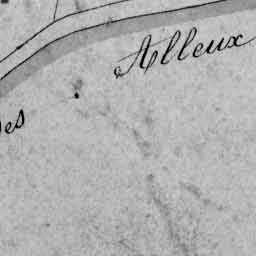 Alleux
es